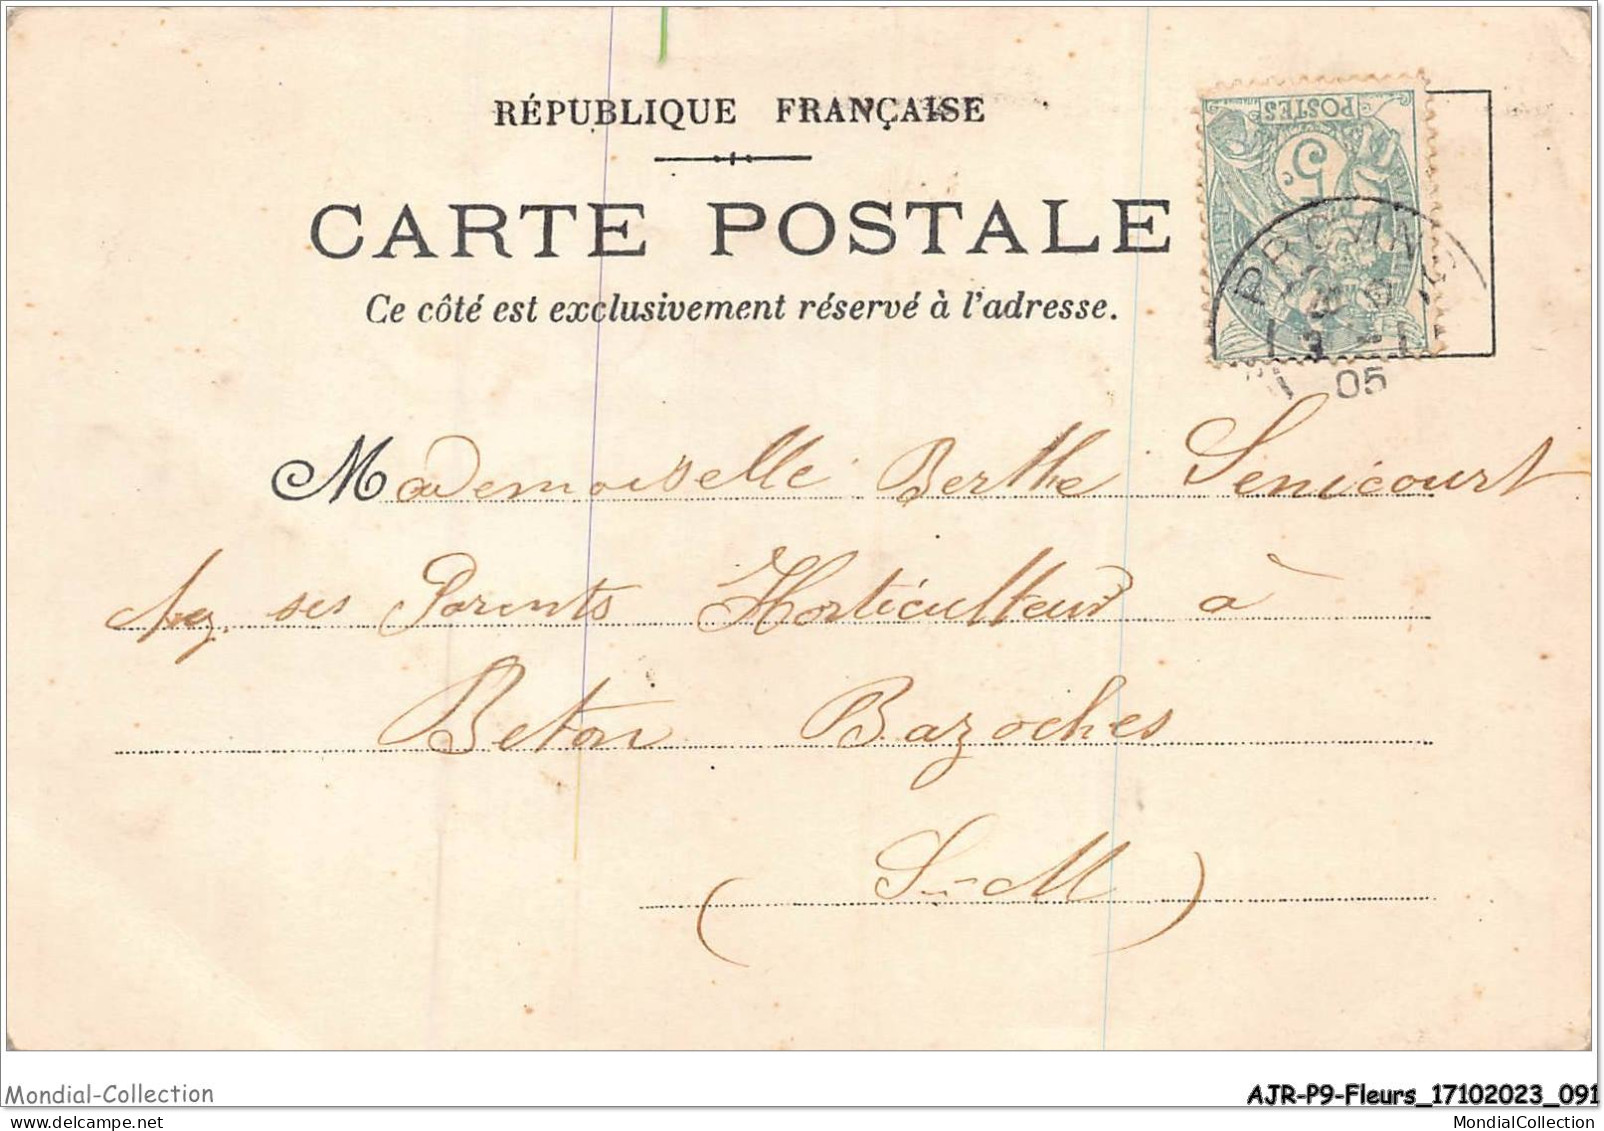 RÉPUBLIQUE FRANÇAISE
POSTES
5
CARTE POSTALE
PROVINS
05
Ce côté est exclusivement réservé à l'adresse.
Mademoiselle Berthe Senicourt
chez ses Parents Horticulteur à
Beton Bazoches
(S-M)
Mondial-Collection
AJR-P9-Fleurs_17102023_091
MondialCollection